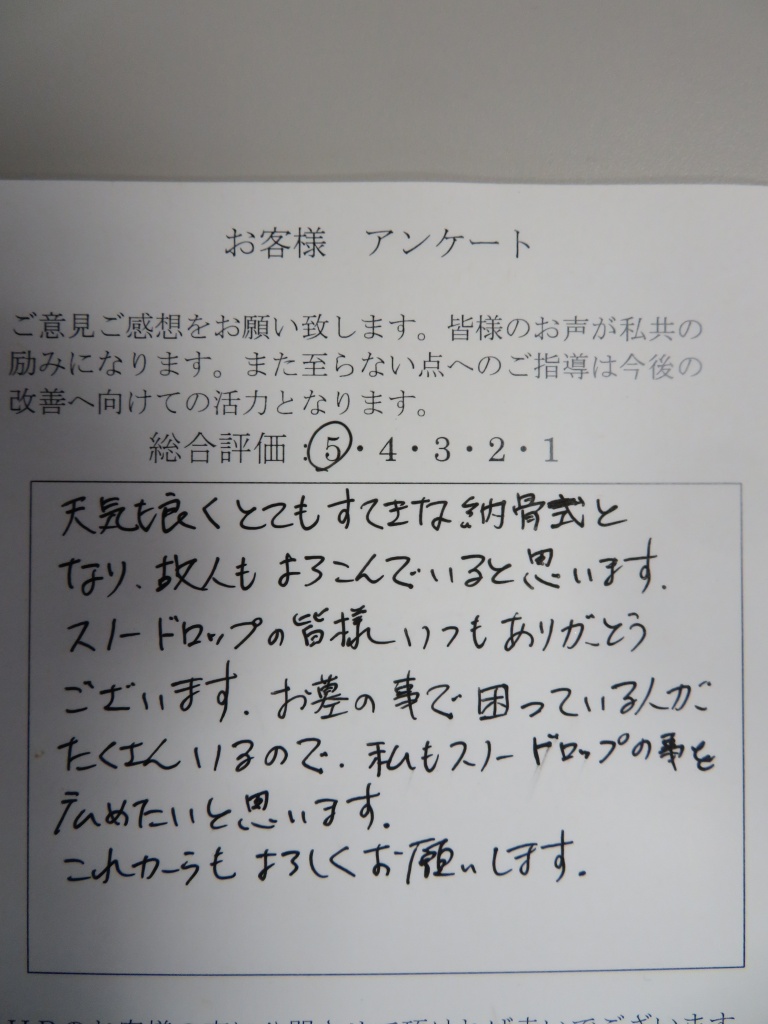 お客様　アンケート
ご意見ご感想をお願い致します。皆様のお声が私共の
励みになります。また至らない点へのご指導は今後の
改善へ向けての活力となります。
総合評価：5・4・3・2・1
天気も良くとてもすてきな納骨式と
なり、故人もよろこんでいると思います.
スノードロップの皆様いつもありがとう
ございます. お墓の事で困っている人が
たくさんいるので、私もスノードロップの事を
広めたいと思います.
これからもよろしくお願いします.